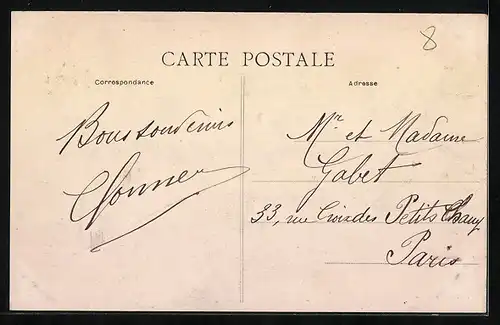 8
CARTE POSTALE
Correspondance
Adresse
Bons souvenirs
Mr et Madame
Gabet
33, rue Croix des Petits Champs
Paris